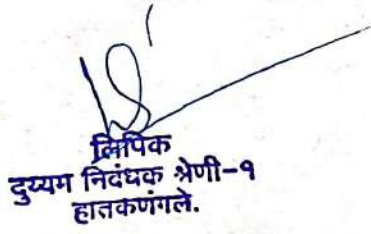 लिपिक
दुय्यम निवंधक श्रेणी-१
हातकणंगले.